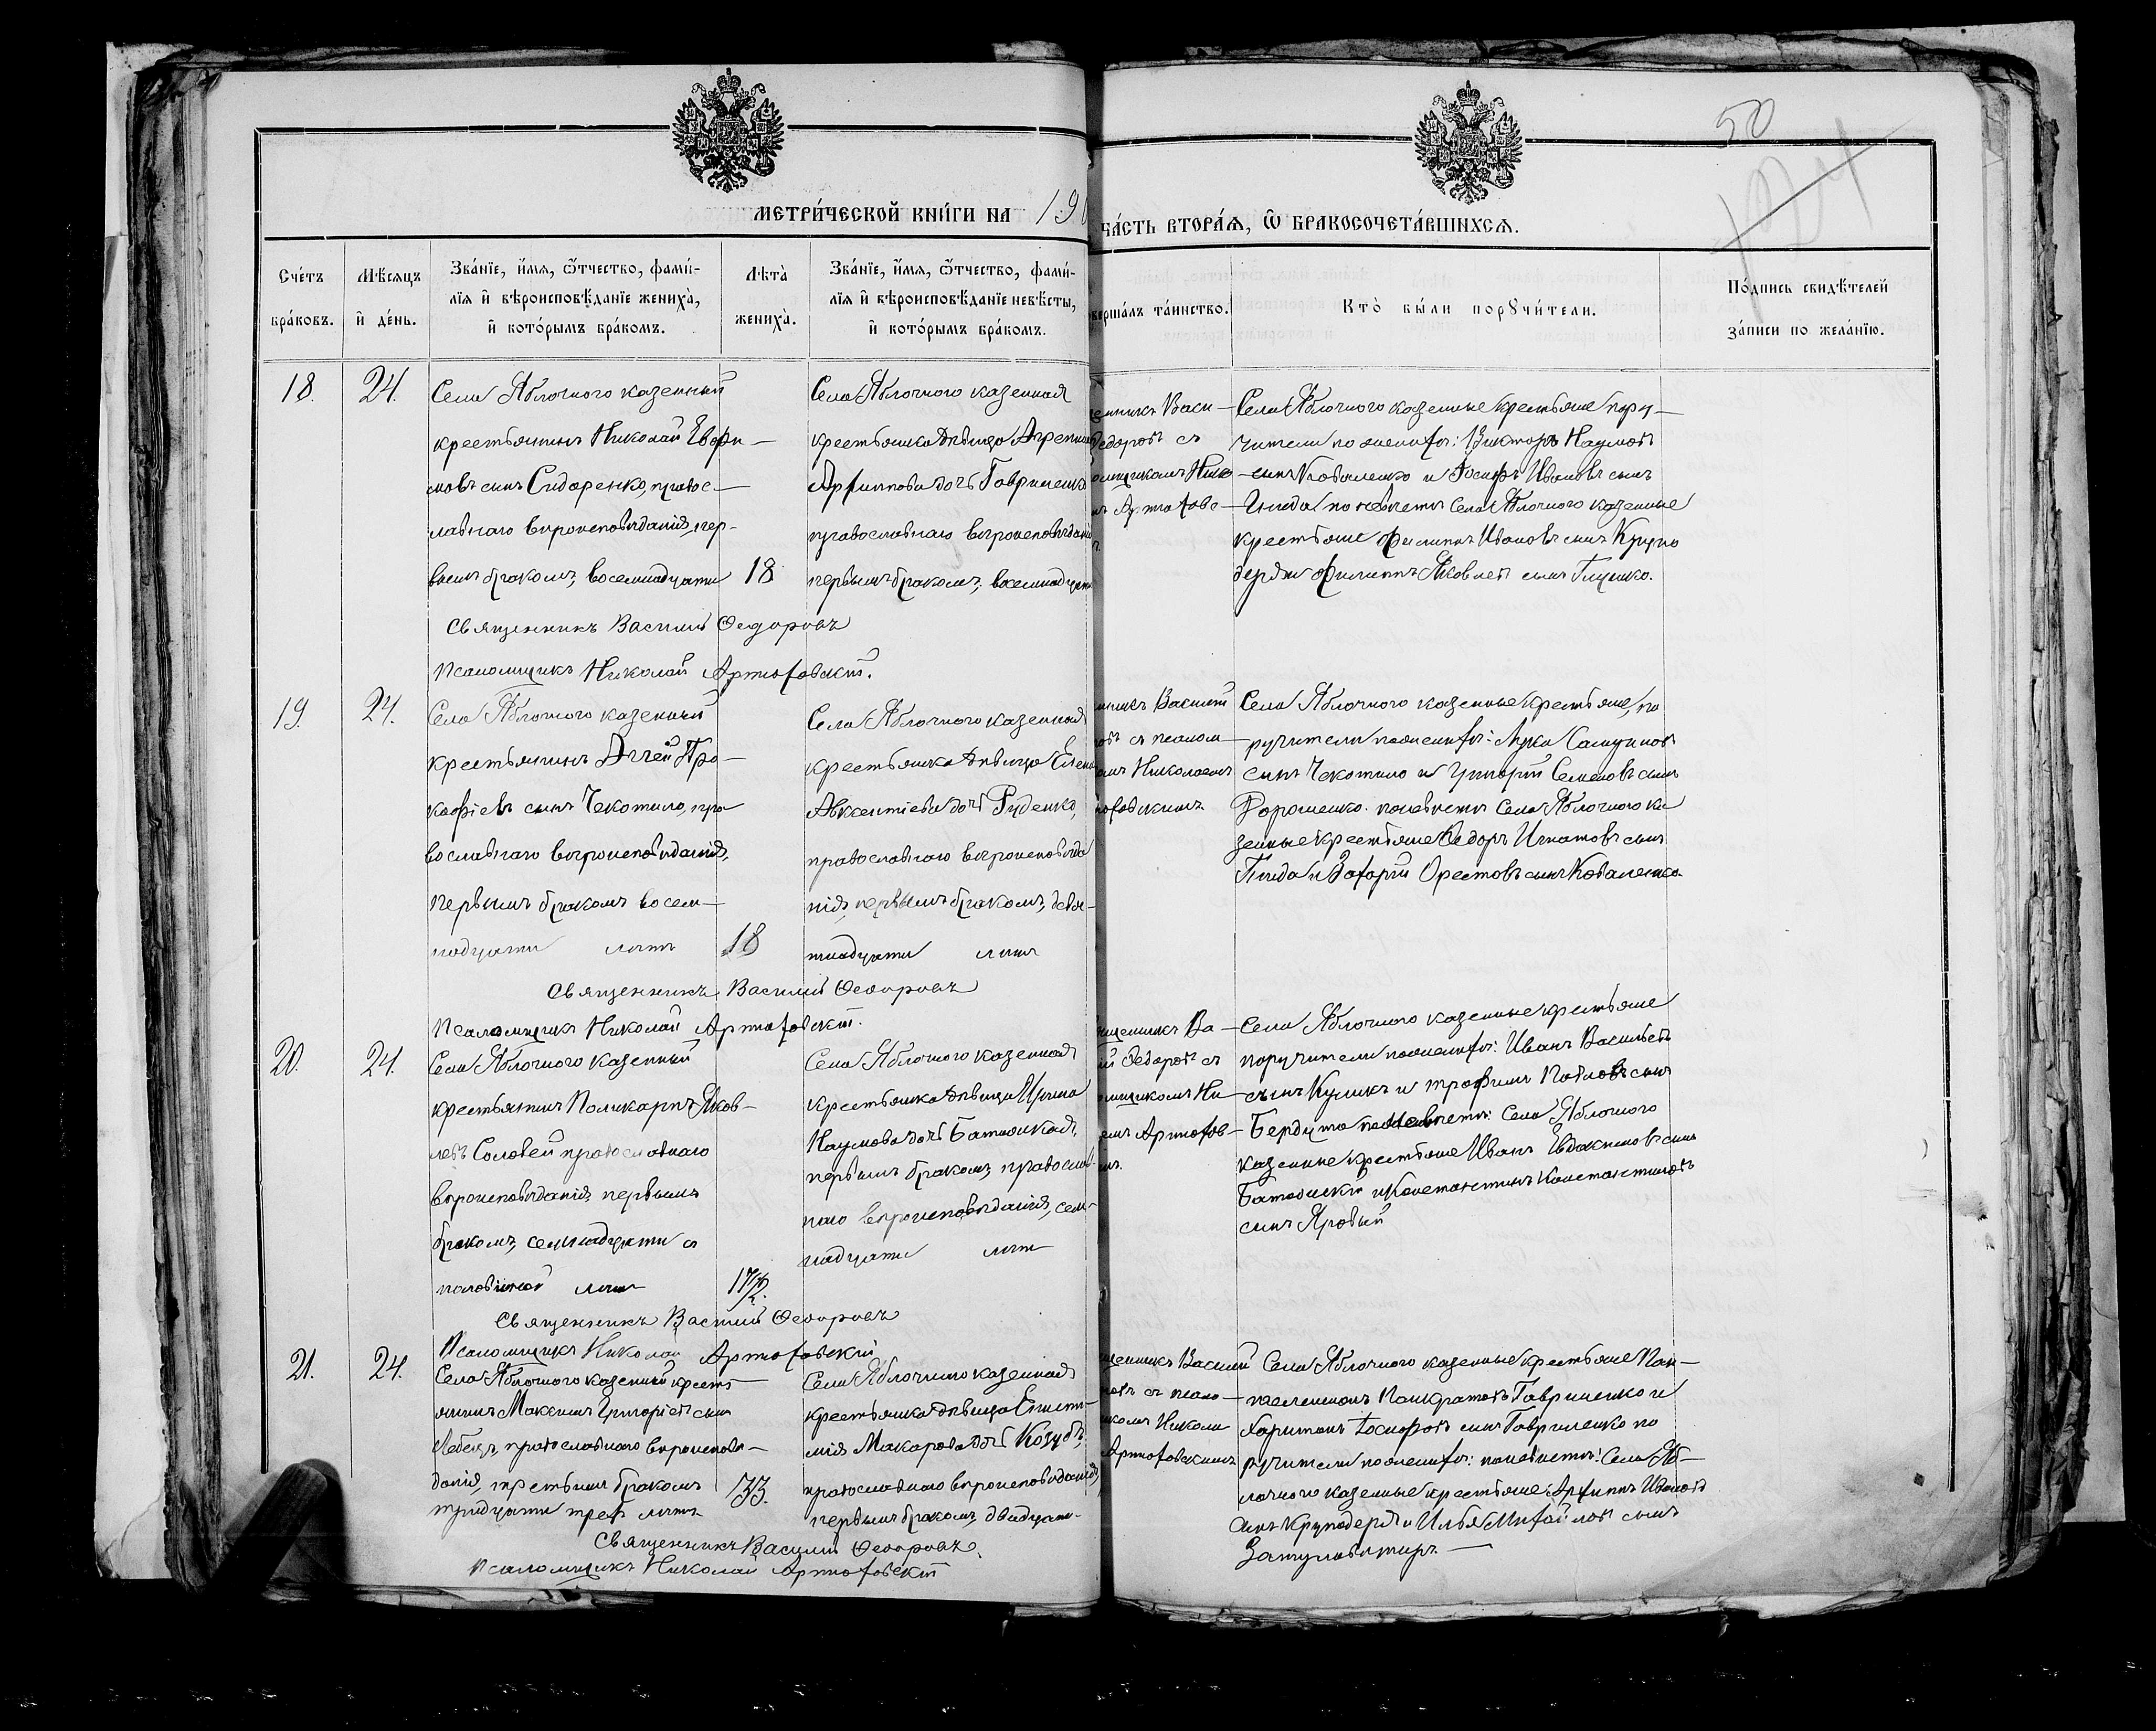 50
124
МЕТРИ́ЧЕСКОЙ КНИ́ГИ НА 190
ЧА́СТЬ ВТОРА́Ѧ, Ѿ БРАКОСОЧЕТА́ВШИХСѦ.
Сче́тъ бра́ковъ.
Мѣ́сѧцъ и҆ де́нь.
Зва́нїе, и҆́мѧ, ѻ҆́тчество, фами́-
лїѧ и҆ вѣроисповѣ́данїе жениха̀,
и҆ кото́рымъ бра́комъ.
Лѣта̀
жениха̀.
Зва́нїе, и҆́мѧ, ѻ҆́тчество, фами́-
лїѧ и҆ вѣроисповѣ́данїе невѣ́сты,
и҆ кото́рымъ бра́комъ.
верша́лъ та́инство.
Кто̀ бы́ли порꙋчи́тели.
По́дпись свидѣ́телей
за́писи по жела́нїю.
18.
24.
Села Яблочного казенный
крестьянинъ Николай Евфи-
мовъ сынъ Сидоренко, правос-
лавнаго вѣроисповѣданія, пер-
вымъ бракомъ, восемнадцати
18
Села Яблочного казенная
крестьянка дѣвица Агрепин
Архиппова дочь Гавриленко
православнаго вѣроисповѣдані
первымъ бракомъ, восемнадцати
енникъ Васи-
Ѳедоровъ съ
омщикомъ Нико
Артюхов-
Села Яблочного казенные крестьяне пору-
чители по женихѣ: Викторъ Наумовъ
сынъ Коваленко и Іосифъ Ивановъ сынъ
Гнида по невѣстѣ Села Яблочного казенные
крестьяне Филиппъ Ивановъ сынъ Крупо
деря и Филиппъ Яковлевъ сынъ Глущко.
Священникъ Василій Ѳедоровъ
Псаломщикъ Николай Артюховскій.
19.
24.
Села Яблочного казенный
крестьянинъ Аггей Про-
кофіевъ сынъ Чекотило, пра
вославнаго вѣроисповѣданія,
первымъ бракомъ восем-
надцати лѣтъ
18
Села Яблочного казенная
крестьянка дѣвица Елена
Авксентіева дочь Руденко,
православнаго вѣроисповѣда
нія, первымъ бракомъ, девят-
надцати лѣтъ
нникъ Василій
овъ съ псалом-
омъ Николаемъ
юховскимъ
Села Яблочного казенные крестьяне, по
ручители по женихѣ: Лука
сынъ Чекотило и Григорій Семеновъ сынъ
Дорошенко. по невѣстѣ Села Яблочного ка
зенные крестьяне Ѳедоръ Игнатовъ сынъ
Гнида и Захарій Орестовъ сынъ Коваленко
Священникъ Василій Ѳедоровъ
Псаломщикъ Николай Артюховскій.
20.
24.
Села Яблочного казенный
крестьянинъ Поликарпъ Яков-
левъ Соловей православнаго
вѣроисповѣданія первымъ
бракомъ, семнадцати съ
половиной лѣтъ
17½.
Села Яблочного казенная
крестьянка дѣвица Ирина
Наумова дочь Батюцкая,
первымъ бракомъ, православ
наго вѣроисповѣданія, сем-
надцати лѣтъ
щенникъ Ва-
ій Ѳедоровъ съ
омщикомъ Ни-
емъ Артюхов-
мъ.
Села Яблочного казенные крестьяне
поручители по женихѣ: Иванъ Васильевъ
сынъ Куликъ и Трофимъ Павловъ сынъ
Бердута по невѣстѣ: Села Яблочного
казенные крестьяне Иванъ Евдокимовъ сынъ
Батюцкій и Константинъ Константиновъ
сынъ Яровый
Священникъ Василій Ѳедоровъ
Псаломщикъ Николай Артюховскій
21.
24.
Села Яблочного казенный кресть-
янинъ Максимъ Григорьевъ сынъ
Лебедь, православнаго вѣроисповѣ-
данія, третьимъ бракомъ
тридцати трехъ лѣтъ
33.
Села Яблочного казенная
крестьянка дѣвица Еписти-
мія Макарова дочь Козубъ,
православнаго вѣроисповѣданія,
первымъ бракомъ, двадцати-
щенникъ Василій
овъ съ псало-
комъ Никола
Артюховскимъ
Села Яблочного казенные крестьяне Пан-
телеимонъ Панкратовъ Гавриленко и
Харитонъ Іосифовъ сынъ Гавриленко по
ручители по женихѣ: по невѣстѣ: Села Яб-
лочного казенные крестьяне: Архиппъ Ивановъ
сынъ Круподеря и Илья Михайловъ сынъ
Священникъ Василій Ѳедоровъ.
Псаломщикъ Николай Артюховскій